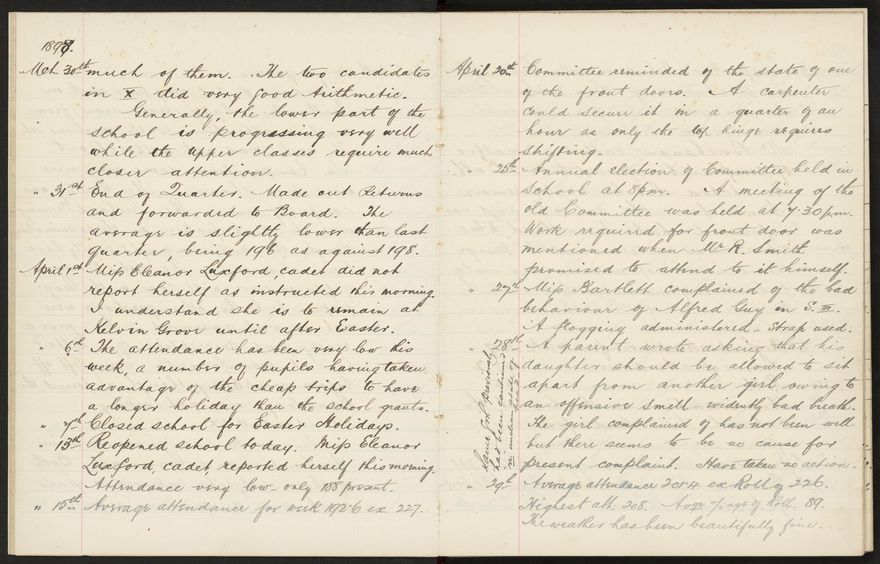 1898.
Mch. 30th much of them. The two candidates
in X did very good Arithmetic.
Generally, the lower part of the
school is progressing very well
while the upper classes require much
closer attention.
" 31st End of Quarter. Made out Returns
and forwarded to Board. The
average is slightly lower than last
quarter, being 196 as against 198.
April 1st Miss Eleanor Luxford, cadet did not
report herself as instructed this morning.
I understand she is to remain at
Kelvin Grove until after Easter.
" 6th The attendance has been very low this
week, a number of pupils having taken
advantage of the cheap trips to have
a longer holiday than the school grants.
" 7th Closed school for Easter Holidays.
" 13th Reopened school today. Miss Eleanor
Luxford, cadet, reported herself this morning.
Attendance very low - only present.
" 15th Average attendance for week 192.6 ex 227.
April 20th Committee reminded of the state of one
of the front doors. A carpenter
could secure it in a quarter of an
hour as only the top hinge requires
shifting.
" 25th Annual Election of Committee held in
School at 8 p.m. A meeting of the
old Committee was held at 7.30 p.m.
Work required for front door was
mentioned when Mr R. Smith
promised to attend to it himself.
" 27th Miss Bartlett complained of the bad
behaviour of Alfred Guy in S. III.
A flogging administered - Strap used.
" 28th A parent wrote asking that his
daughter should be allowed to sit
apart from another girl owing to
an offensive smell - evidently bad breath.
The girl complained of has not been well
but there seems to be no cause for
present complaint. Have taken no action.
Same girl previously
had been cautioned
" 29th Average attendance 201.4 ex Roll of 226.
Highest att. 208. age of Roll. 89.
The weather has been beautifully fine.